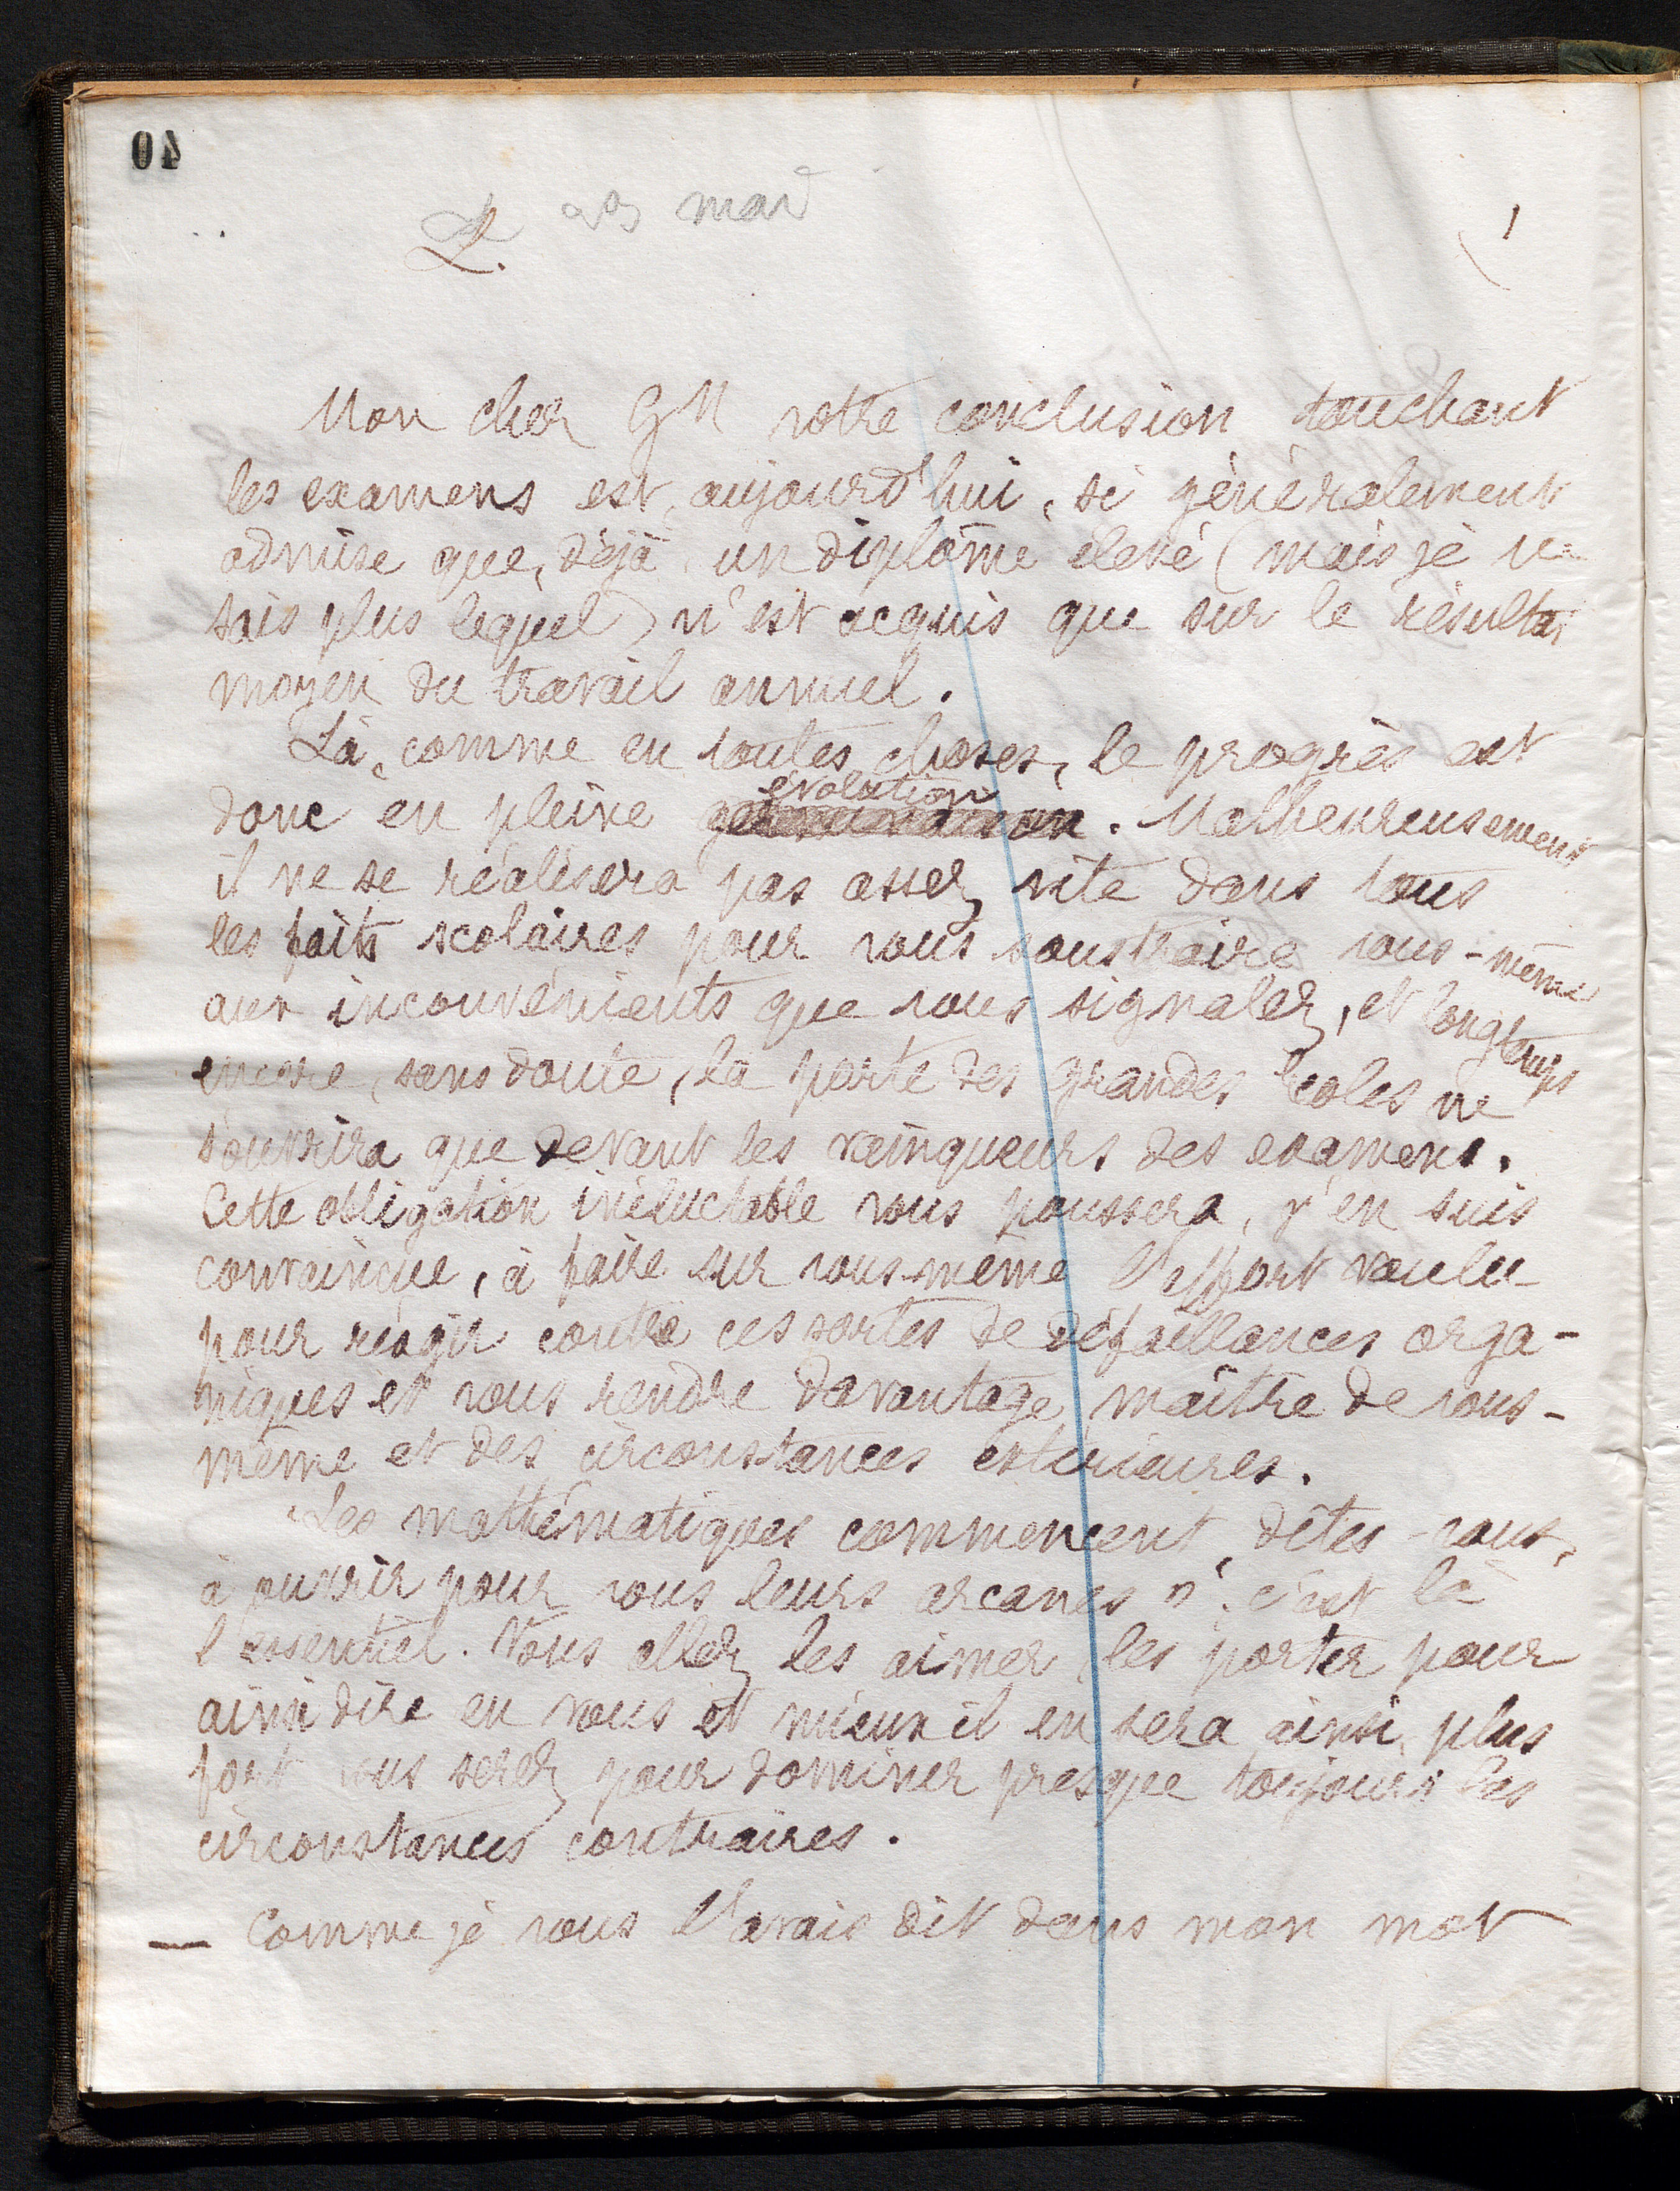 L.
1
Mon cher GM votre conclusion touchant
les examens est, aujourd'hui, si généralement
admise que, déjà, un diplôme élevé (mais je ne
sais plus lequel) n'est acquis que sur le résultat
moyen du travail annuel.
Là, comme en toutes choses, le progrès est
évolution
donc en pleine . Malheureusement
il ne se réalisera pas assez vite dans tous
les faits scolaires pour vous soustraire vous-même
aux inconvénients que vous signalez, et longtemps
encore, sans doute, la porte des grandes Ecoles ne
s'ouvrira que devant les vainqueurs des examens.
Cette obligation inéluctable vous poussera, j'en suis
convaincue, à faire sur vous-même l'effort voulu
pour réagir contre ces sortes de défaillances orga-
niques et vous rendre davantage maître de vous-
même et des circonstances extérieures.
"Les mathématiques commencent, dites-vous,
à ouvrir pour vous leurs arcanes". c'est là
l'essentiel. Vous allez les aimer, les porter pour
ainsi dire en vous et mieux il en sera ainsi, plus
fort vous serez pour dominer presque toujours les
circonstances contraires.
— Comme je vous l'avais dit dans mon mot